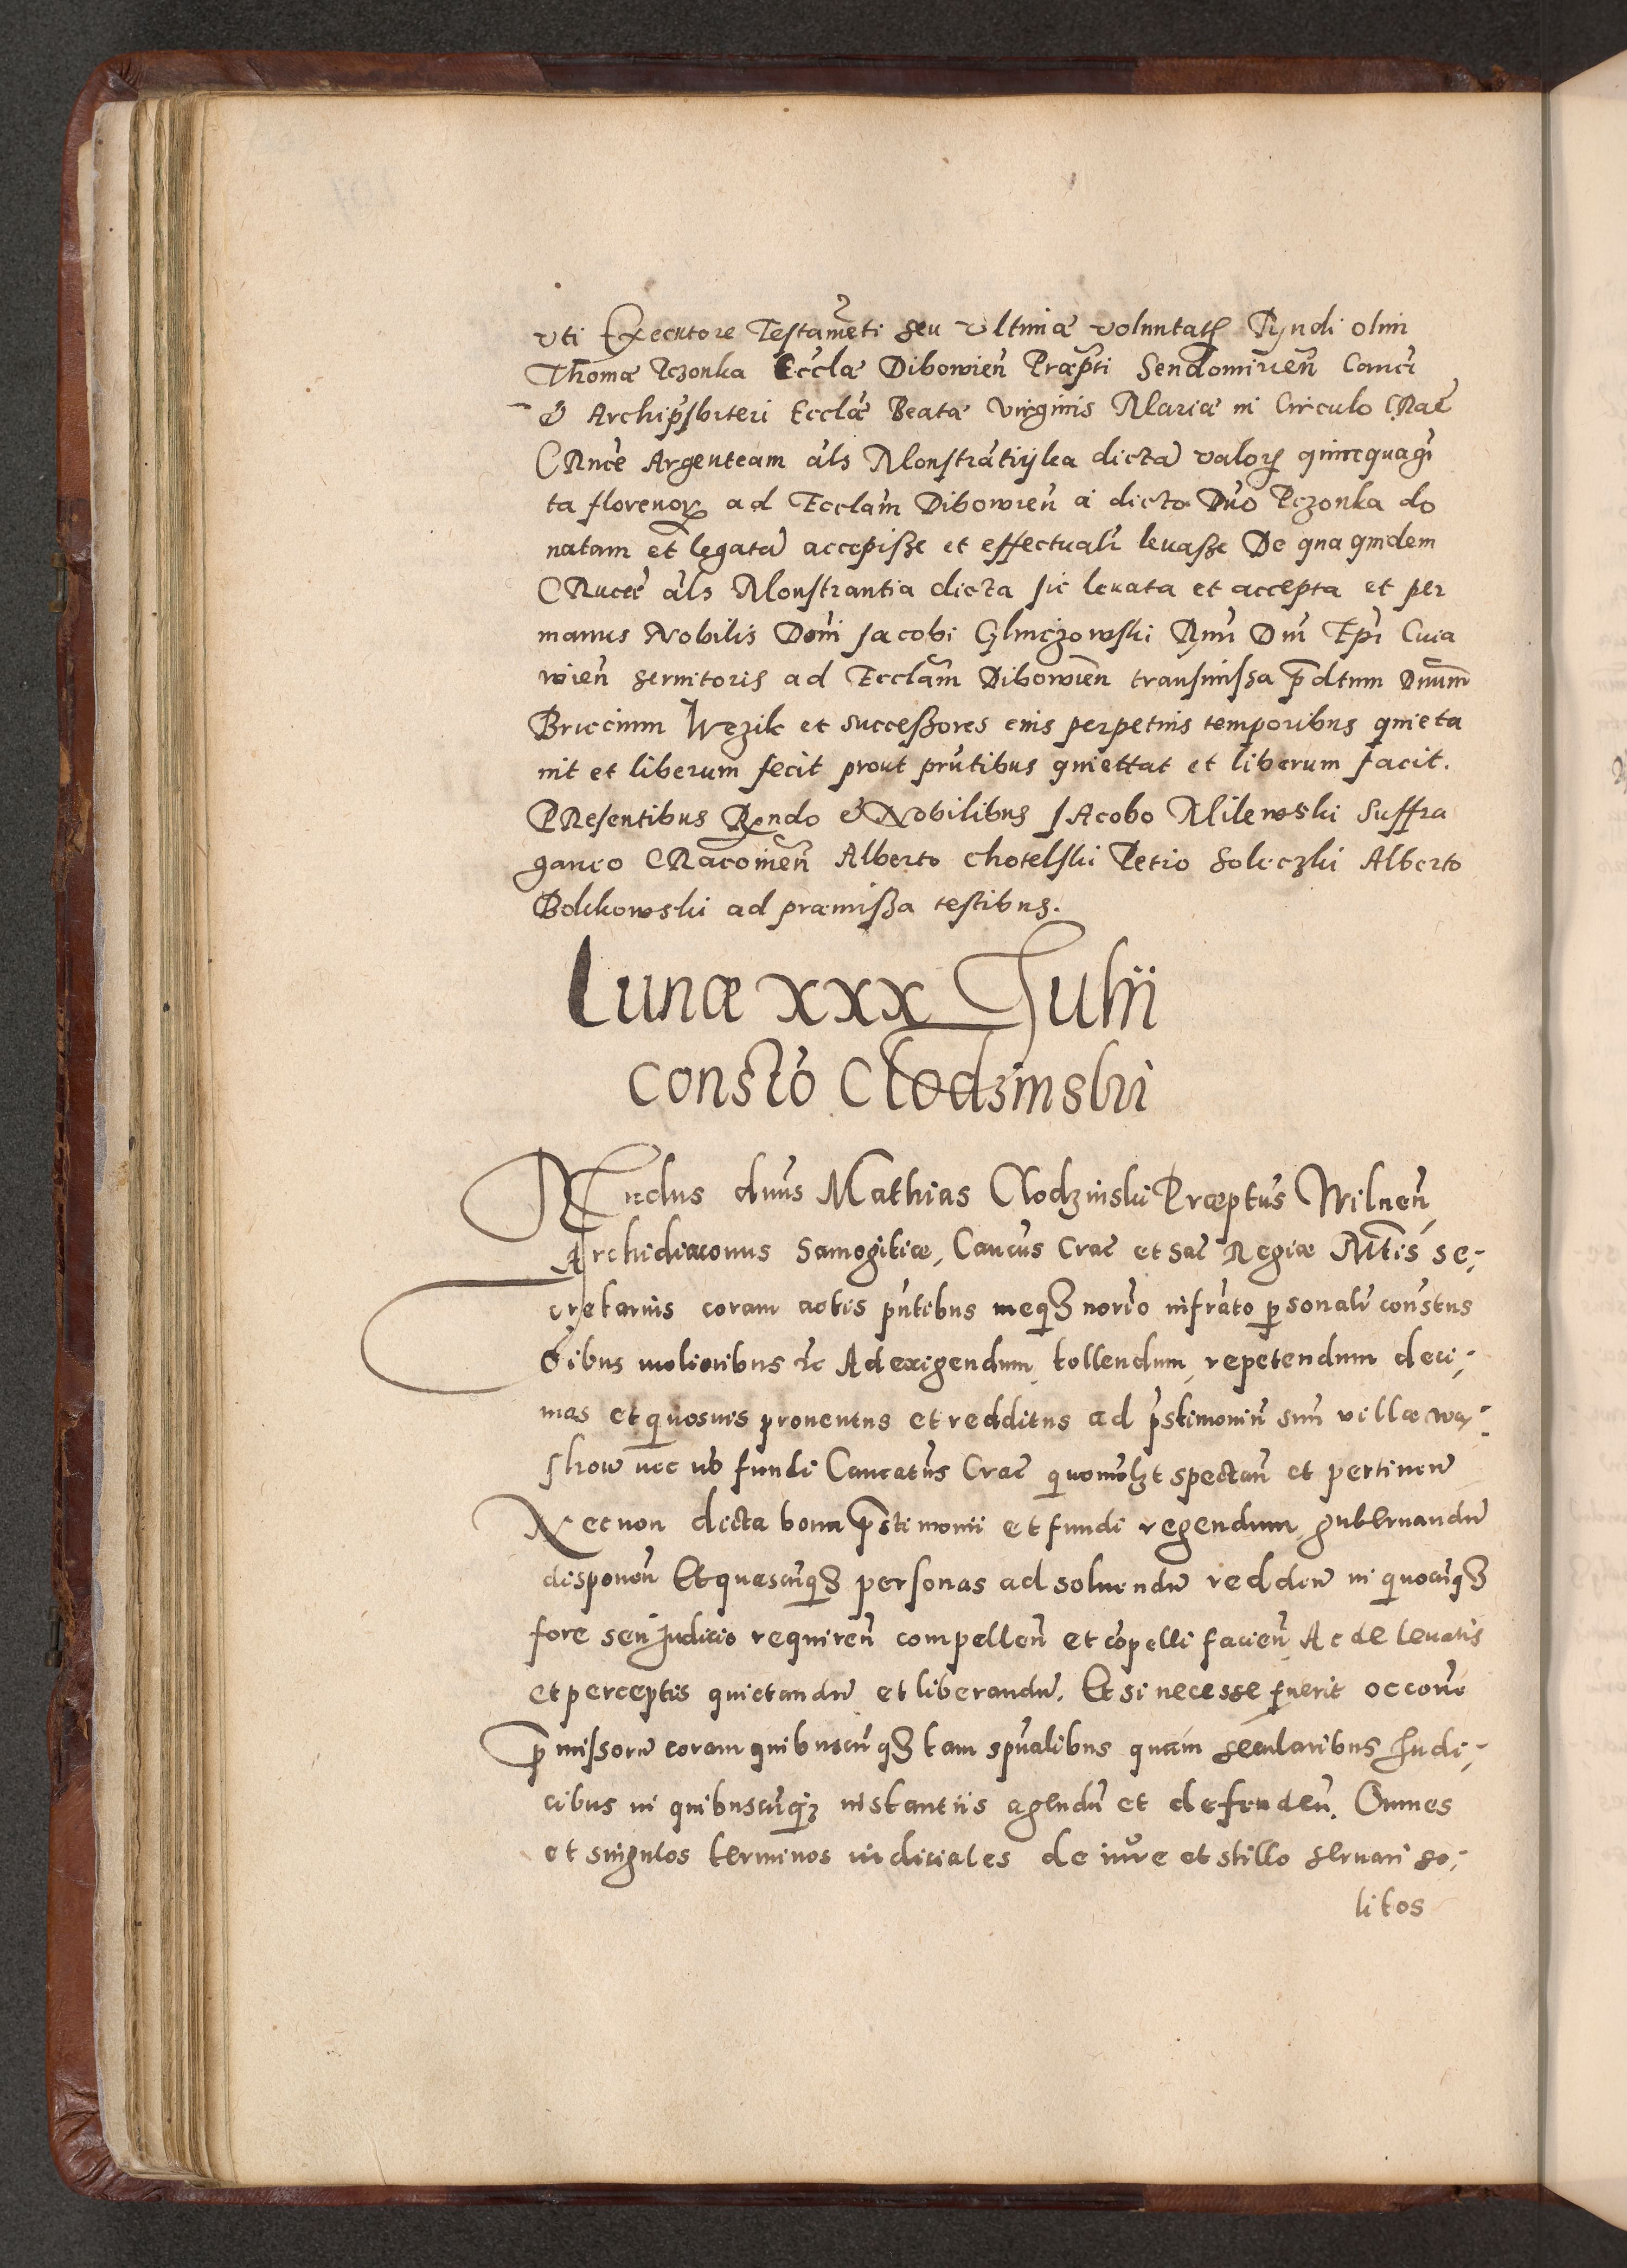 uti Executore Testamēti seu ultimæ voluntatꝭ Rṽndi olim
Thomæ Rczonka Eccłæ Dibowieñ Præpti Sendomirieñ Canci
et Archiprsbiteri Eccłæ Beatæ Virginis Mariæ in Circulo CRac̄
CRuce Argenteam als Monstrantiyka dictā valorꝭ quinquagi
ta florenoꝝ ad Ecclām Dibowieñ a dicto Dno Rczonka do
natam et legatā accepisse et effectualr̄ levasse De qua quidem
CRuce als Monstrantia dicta sic levata et accepta et per
manus Nobilis Domi Jacobi Glinczowski Rmi Dni Epi Cuia
wieñ seruitoris ad Ecclām Dibowieñ transmissa p̄dtum Dnum
Briccium Wezik et successores eius perpetuis temporibus quieta
uit et liberum fecit prout pr̄ntibus quiettat et liberum facit.
PResentibus Rṽndo et Nobilibus JAcobo Milewski Suffra
ganeo CRacouieñ Alberto Chotelski Petro Soleczki Alberto
Bolkowski ad præmissa testibus.
Lunæ xxx Julii
Constō Clodzinski
RṼndus dnus Mathias Clodzinski Præptus Wilneñ
Archidiaconus Samogitiæ, Cancus Crac̄ et Sac̄ Regiæ Mtis se-
cretarius coram actis pn̄tibus meqꝫ nor̄io infrāto ꝑsonalr̄ constus
Oibus melioribus etc Ad exigendum, tollendum, repetendum deci-
mas et quosuis prouentus et redditus ad p̄stimoniū suū villæ Wy-
show nec nō fundi Cancatus Crac̄ quomōlꝫt spectañ et pertineñ
Necnon dicta bona p̄stimonii et fundi regendum, gubernandū
disponeñ Et quascūqꝫ personas ad soluendū reddeñ in quocūqꝫ
fore seu Judicio requireñ compelleñ et cōpelli facieñ Ac de leuatis
et perceptis quietandū et liberandū. Et si necesse fuerit occoñe
p̄missorū coram quibuscūqꝫ tam sp̄ualibus quam secularibus Judi-
cibus in quibuscūqꝫ instantiis agendū et defendeñ. Omnes
et singulos terminos iudiciales de iure et stillo seruari so-
litos